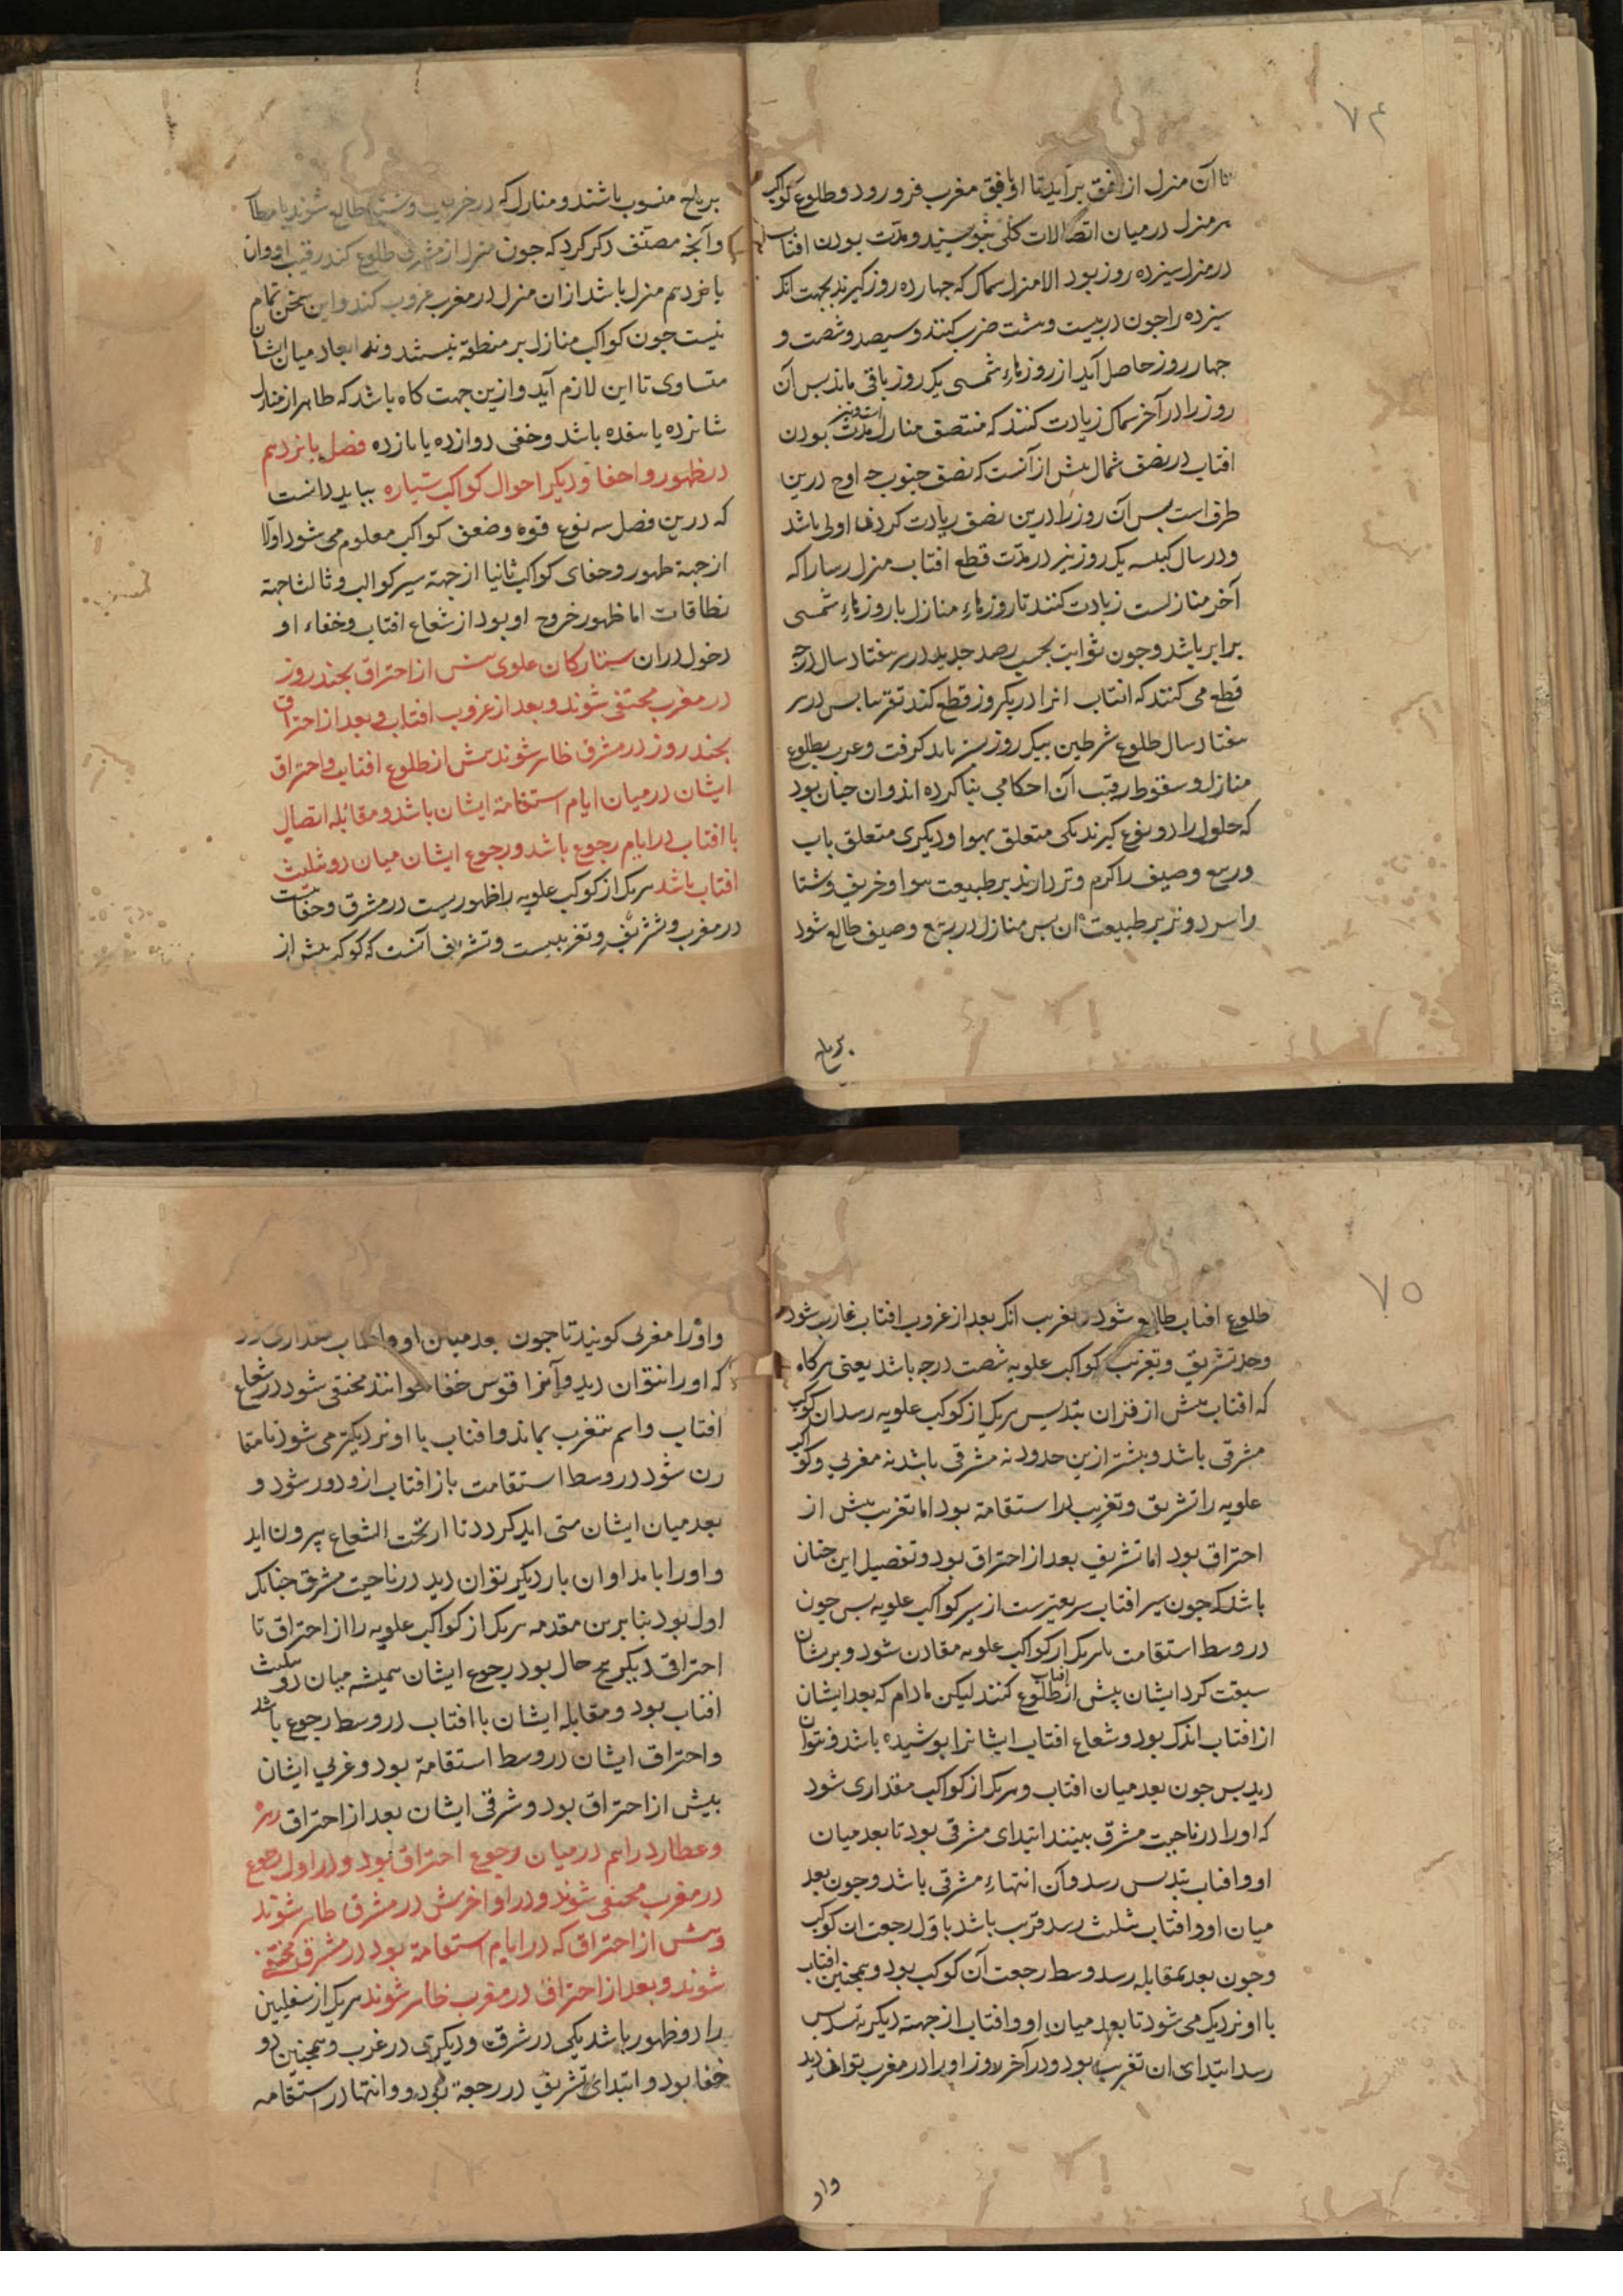 ۷۴
تا آن منزل از افق برآید تا او بافق مغرب فرو رود و طلوع کواکب
هر منزل در میان اتصالات کلی بنویسند و مدت بودن افتاب
در منزل سیزده روز بود الا منزل سماک که چهارده روز گیرند بجهت انک
سیزده را جون در بیست و هشت ضرب کنند و سیصد و شصت و
چهار روز حاصل آید از روزهاء شمسی یک روز باقی ماند بس آن
روز را در آخر سماک زیادت کنند که منتصف منازل است و نیز مدت بودن
افتاب در نصف شمال بیش از آنست که نصف جنوب جه اوج درین
طرف است بس آن روز را درین نصف زیادت کردن اولی باشد
و در سال کبیسه یک روز نیز در مدت قطع افتاب منزل رسا را که
آخر منازلست زیادت کنند تا روزهاء منازل با روزهاء شمسی
برابر باشد و جون ثوابت بحسب رصد جدید در هر هفتاد سال درجه
قطع می کنند که افتاب انرا در یکروز قطع کند تقریبا بس در هر
هفتاد سال طلوع شرطین بیک روز بس باید گرفت و عرب بطلوع
منازل و سقوط رقیب آن احکامی بنا کرده اند و ان جنان بود
که حلول را دو نوع گیرند یکی متعلق بهوا و دیگری متعلق باب
و ربیع و صیف را گرم و تر دارند بر طبیعت هوا و خریف و شتا
را سرد و تر بر طبیعت ان بس منازل در ربیع و صیف طالع شود
بریاح
بریاح منسوب باشند و منازل که در خریف و شتا طالع شوند بامطار
و آنچه مصنف ذکر کرد که جون منزل از مشرق طلوع کند رقیب او و ان
بانزدهم منزل باشد از ان منزل در مغرب غروب کند و این سخن تمام
نیست جون کواکب منازل بر منطقه نیستند و نه ابعاد میان ایشان
متساوی تا این لازم آید و ازین جهت گاه باشد که ظاهر از منازل
شانزده یا هفده باشد و خفی دوازده یا یازده فصل بانزدهم
در ظهور و اخفا و دیگر احوال کواکب سیاره بباید دانست
که درین فصل سه نوع قوه و ضعف کواکب معلوم می شود اولا
از جهة ظهور و خفای کواکب ثانیا از جهة سیر کواکب و ثالثا جهة
نطاقات اما ظهور خروج او بود از شعاع افتاب و خفاء او
دخول در ان ستارکان علوی بیش از احتراق بجند روز
در مغرب مختفی شوند و بعد از غروب افتاب و بعد از احتراق
بجند روز در مشرق ظاهر شوند بیش از طلوع افتاب و احتراق
ایشان در میان ایام استقامة ایشان باشد و مقابله اتصال
با افتاب در ایام رجوع باشد و رجوع ایشان میان دو تثلیث
افتاب باشد هر یک از کواکب علویه را ظهوریست در مشرق و خفائیست
در مغرب و تشریق و تغریبیست و تشریق آنست که کوکب بیش از
۷۵
طلوع افتاب طالع شود و تغریب انک بعد از غروب افتاب غارب شود
و حد تشریق و تغریب کواکب علویه شصت درجه باشد یعنی هرگاه
که افتاب بیش از قران بتدیس هر یک از کواکب علویه رسد ان کوکب
مشرقی باشد و بیشتر ازین حدود نه مشرقی باشد نه مغربی و کواکب
علویه را تشریق و تغریب در استقامة بود اما تغریب بیش از
احتراق بود اما تشریق بعد از احتراق بود و تفصیل این جنان
باشد که جون سیر افتاب سریعترست از سیر کواکب علویه بس جون
در وسط استقامت با هر یک از کواکب علویه مقارن شود و بر ایشان
سبقت کرد ایشان بیش از طلوع افتاب کنند لیکن مادام که بعد ایشان
از افتاب اندک بود و شعاع افتاب ایشانرا بوشیده باشد و نتوان
دید بس جون بعد میان افتاب و هر یک از کواکب مقداری شود
که او را در ناحیت مشرق بینند ابتدای مشرقی بود تا بعد میان
او و افتاب بتدیس رسد و آن انتهاء مشرقی باشد و جون بعد
میان او و افتاب بتثلیث رسد قریب باشد باول رجعت ان کوکب
و جون بعد بمقابله رسد وسط رجعت آن کوکب بود و همچنین افتاب
با او نزدیک می شود تا بعد میان او و افتاب از جهة دیگر بتسدیس
رسد ابتدای ان تغریب بود و در آخر روز او را در مغرب بتوان دید
واو
و او را مغربی گویند تا جون بعد میان او و افتاب بمقداری شود
که او را نتوان دید و آنرا قوس خفا خوانند مختفی شود در شعاع
افتاب و اسم تغرب بماند و افتاب با او نزدیکتر می شود تا مقا
رن شود در وسط استقامت باز افتاب ازو دور شود و
بعد میان ایشان متزاید گردد تا از تحت الشعاع بیرون اید
و او را بامداوان بار دیگر توان دید در ناحیت مشرق جنانک
اول بود بنا برین مقدمه هر یک از کواکب علویه را از احتراق تا
احتراق دیگر بنج حال بود رجوع ایشان همیشه میان دو تثلیث
افتاب بود و مقابله ایشان با افتاب در وسط رجوع باشد
و احتراق ایشان در وسط استقامة بود و غربی ایشان
بیش از احتراق بود و شرقی ایشان بعد از احتراق زهره
و عطارد را هم در میان رجوع احتراق بود و در اول رجوع
در مغرب مختفی شوند و در اواخرش در مشرق ظاهر شوند
و بیش از احتراق که در ایام استقامة بود در مشرق مختفی
شوند و بعد از احتراق در مغرب ظاهر شوند هر یک از سفلیین
را دو ظهور باشد یکی در شرق و دیگری در غرب و همچنین دو
خفا بود و ابتدای تشریق در رجعة بود و انتها در استقامه